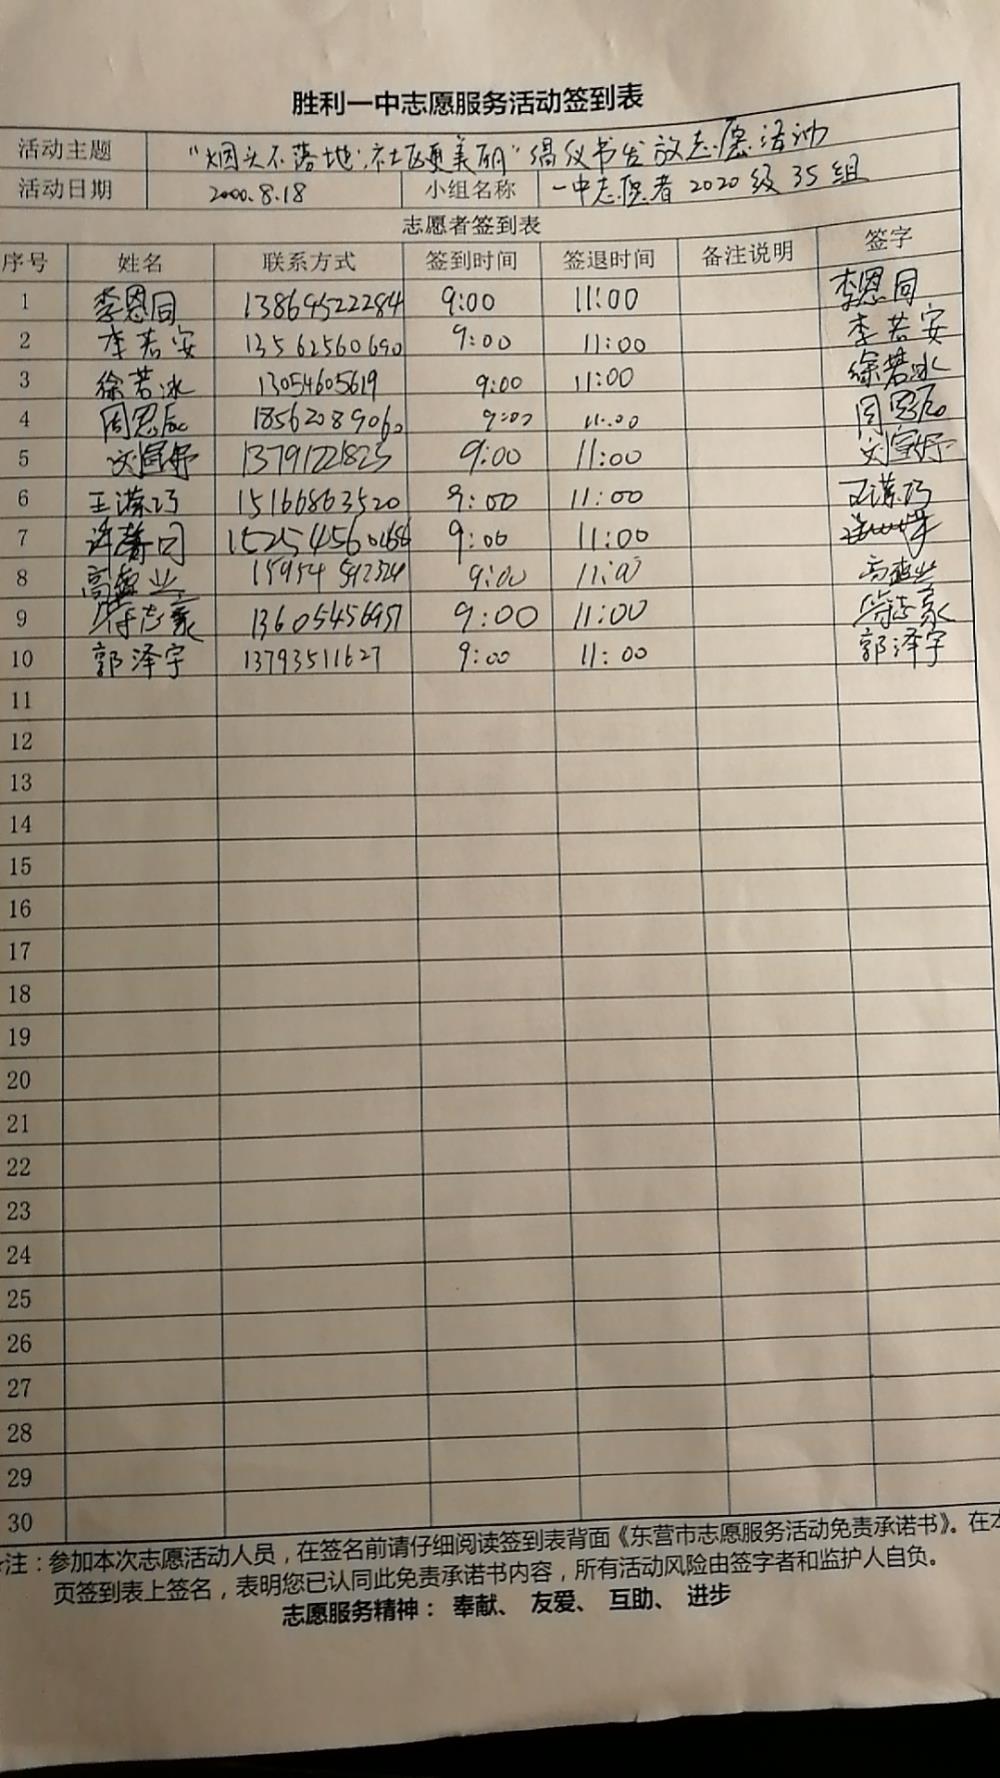 胜利一中志愿服务活动签到表
活动主题 "烟头不落地,社区更美丽"倡仪书发放志愿活动
活动日期 2000.8.18 小组名称 一中志愿者2020级35组
志愿者签到表
序号 姓名 联系方式 签到时间 签退时间 备注说明 签字
1 李恩同 13864522284 9:00 11:00 李恩同
2 李若安 13562560690 9:00 11:00 李若安
3 徐若冰 13054605619 9:00 11:00 徐若冰
4 周思辰 18562089060 9:00 11:00 周思辰
5 刘宣妤 13791221823 9:00 11:00 刘宣妤
6 王潆巧 15166863520 9:00 11:00 王潆巧
7 9:00 11:00
8 高盛业 9:00 11:00 高盛业
9 13605456951 9:00 11:00
10 郭泽宇 13793511627 9:00 11:00 郭泽宇
11
12
13
14
15
16
17
18
19
20
21
22
23
24
25
26
27
28
29
30
注:参加本次志愿活动人员,在签名前请仔细阅读签到表背面《东营市志愿服务活动免责承诺书》。在本
页签到表上签名,表明您已认同此免责承诺书内容,所有活动风险由签字者和监护人自负。
志愿服务精神: 奉献、 友爱、 互助、 进步